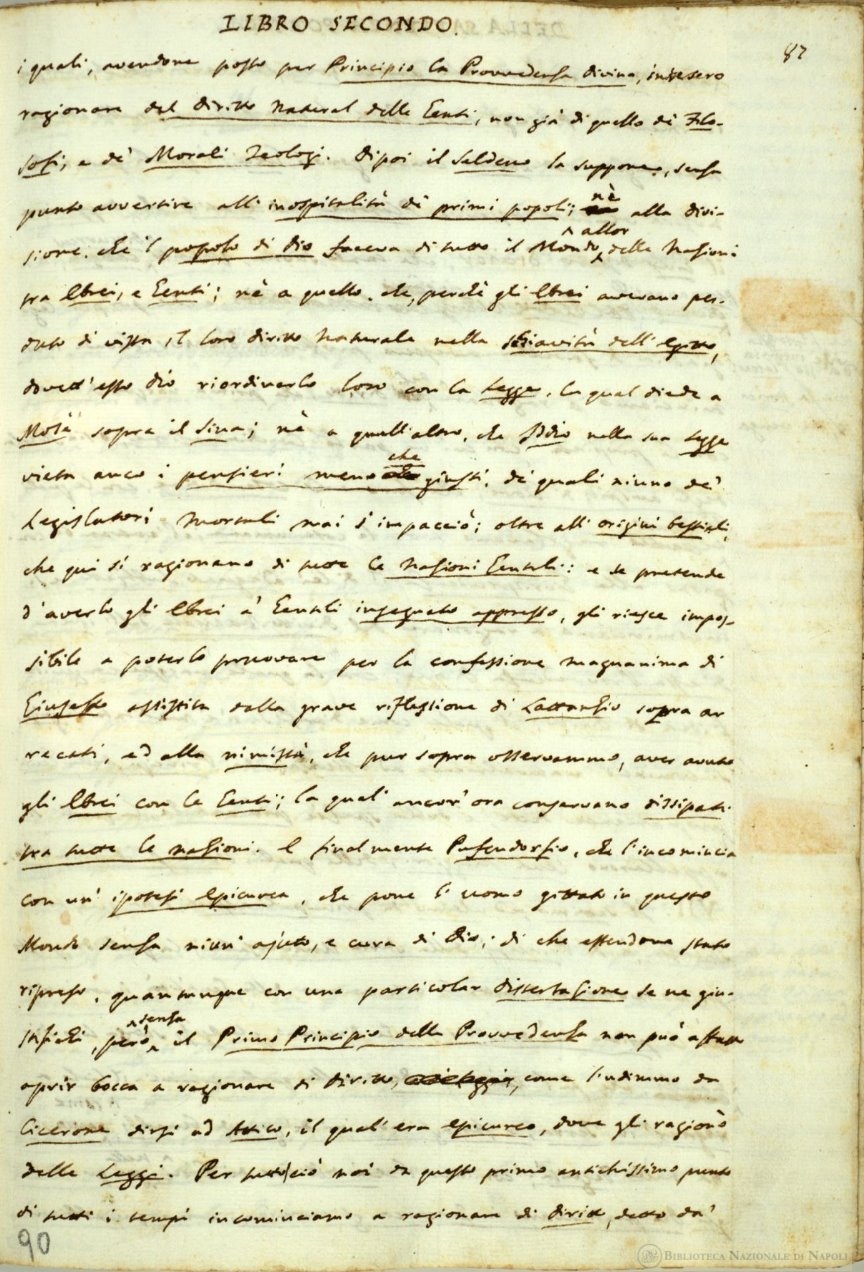 LIBRO SECONDO.
87
i quali, avendone posto per Principio la Provvedenza divina, intesero
ragionare del diritto Natural delle Genti, non già di quello de' Filo-
sofi, e de' Morali Teologi. Dipoi il Seldeno la suppone, senza
punto avvertire all' inospitalità de' primi popoli; nè alla divi-
sione, che 'l popolo di Dio faceva di tutto il Mondo allor delle Nazioni
tra Ebrei, e Genti; nè a quello, che, perchè gli Ebrei avevano per-
duto di vista, il loro diritto Naturale nella schiavitù dell' Egitto,
dovett' esso Dio riordinarlo loro con la Legge, la qual diede a
Mosè sopra il Sina; nè a quell' altro, che Iddio nella sua Legge
vieta anco i pensieri meno che giusti, de' quali niuno de'
Legislatori mortali mai s' impacciò; oltre all' origini bestiali,
che qui si ragionano di tutte le Nazioni Gentili: e se pretende
d' averlo gli Ebrei a' Gentili insegnato appresso, gli riesce impos-
sibile a poterlo pruovare per la confessione magnanima di
Giuseffo assistita dalla grave riflessione di Lattanzio sopra ar
recati, ed alla nimistà, che pur sopra osservammo, aver avuto
gli Ebrei con le Genti; la qual' ancor' ora conservano dissipati
tra tutte le nazioni. E finalmente Pufendorfio, che l' incomincia
con un' ipotesi epicurea, che pone l' uomo gittato in questo
Mondo senza niun' ajuto, e cura di Dio; di che essendone stato
ripreso, quantunque con una particolar dissertazione se ne giu-
stifichi, però senza il Primo Principio della Provvedenza non può affatto
aprir bocca a ragionare di diritto, come l' udimmo da
Cicerone dirsi ad Attico, il qual' era epicureo, dove gli ragionò
delle Leggi. Per tutto ciò noi da questo primo antichissimo punto
di tutti i tempi incominciamo a ragionare di diritto, detto da'
90
BIBLIOTECA NAZIONALE DI NAPOLI